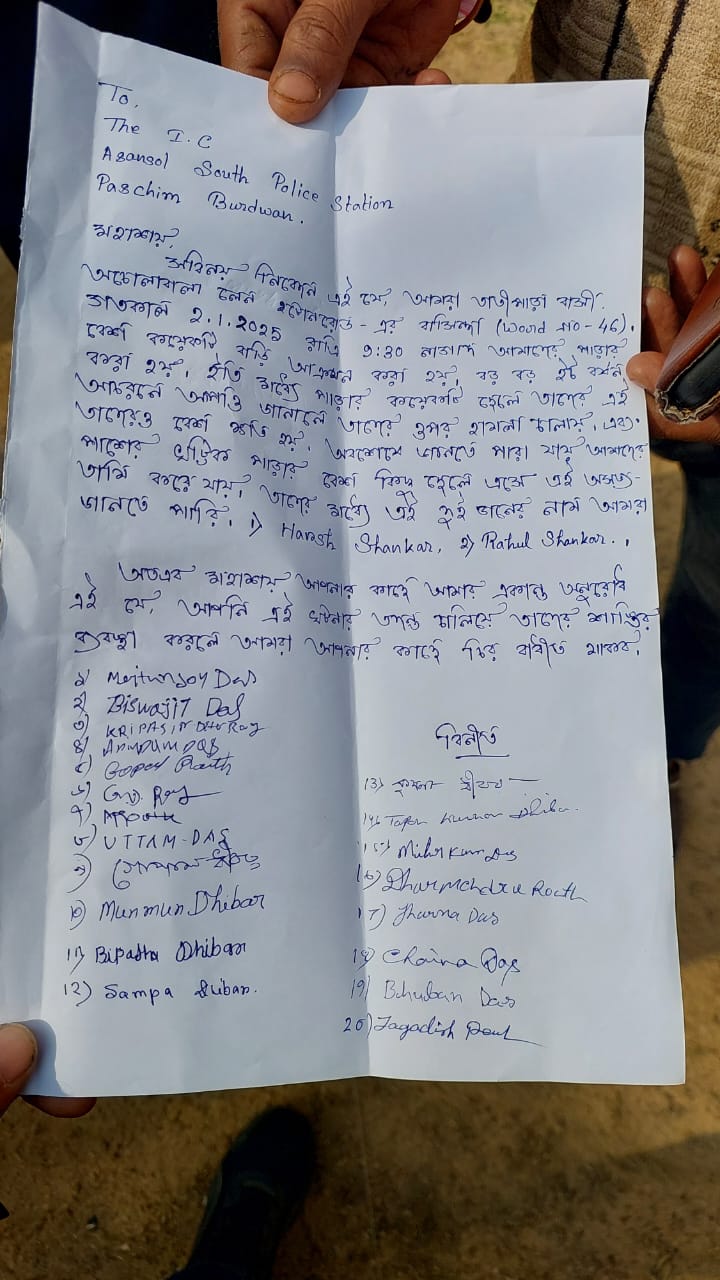 To,
The I.C
Asansol South Police Station
Paschim Burdwan.
মহাশয়,
সবিনয় নিবেদন এই যে, আমরা তাতীপাড়া বাসী.
লেন - এর বাসিন্দা (Word No - 46).
গতকাল 2.1.2025 রাত্রি 9:30 নাগাদ আমাদের পাড়ার
বেশ কয়েকটি বাড়ি আক্রমন করা হয়. বড় বড় ইট বর্ষন
করা হয়. ইতি মধ্যে পাড়ার কয়েকটি ছেলে তাদের এই
আচরনে আপত্তি জানালে তাদের ওপর হামলা চালায়. এবং
তাদেরও বেশ ক্ষতি হয়. অবশেষে জানতে পারা যায় আমাদের
পাশের খটিক পাড়ার বেশ কিছু ছেলে এসে এই অসভ্য-
তামি করে যায়. তাদের মধ্যে এই দুই জনের নাম আমরা
জানতে পারি. 1) Harash Shankar, 2) Rahul Shankar..
অতএব মহাশয় আপনার কাছে আমার একান্ত অনুরোধ
এই যে, আপনি এই ঘটনার তদন্ত চালিয়ে তাদের শাস্তির
ব্যবস্থা করলে আমরা আপনার কাছে চির বাধীত থাকব.
বিনীত
১) Mritunjoy Das
২) Biswajit Das
৩) KRIPASINDHU Roy
৪) ANUPUM DAS
৫) Gopal Routh
৬) Roy
৭)
৮) UTTAM-DAS
৯) গোপাল ধীবর
১০) Munmun Dhibar
11) Bipasha Dhibar
12) Sampa Dhibar.
13) ধীবর
14) Tapan Kumar Dhibar
15) Mihir Kum Das
16) Dharmendra Routh
17) Jharna Das
18) Chaina Das
19) Bhuban Das
20) Jagadish Paul